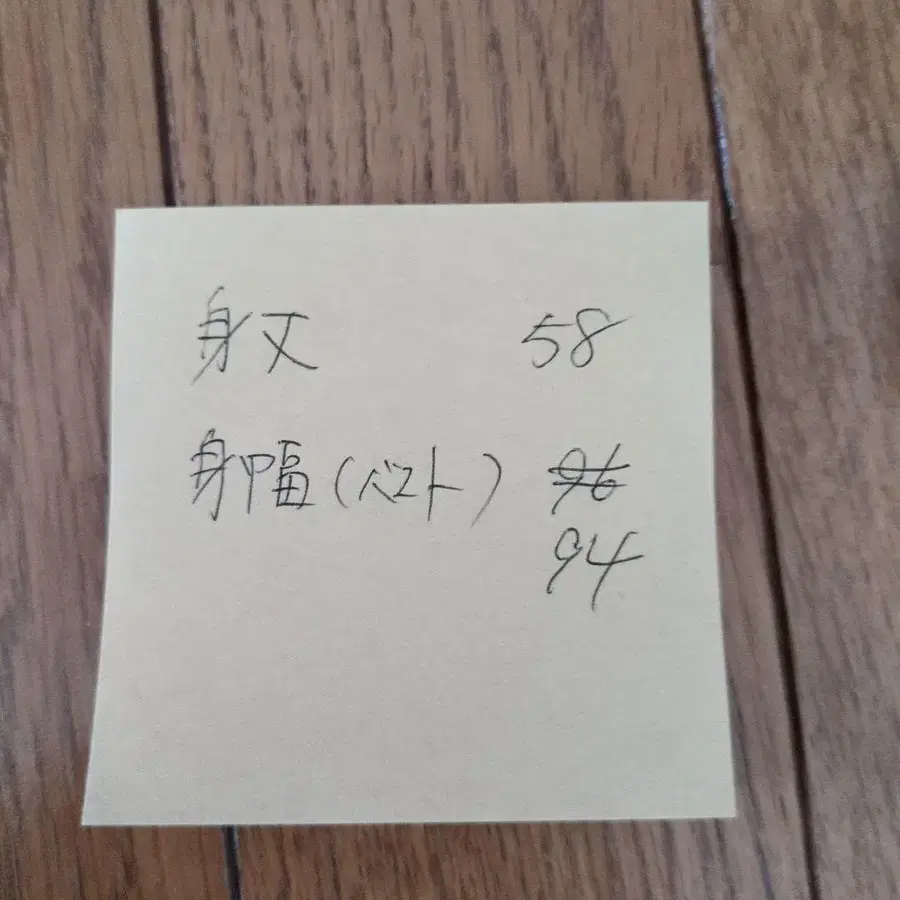 身丈 58
身幅(ベスト) 96
94